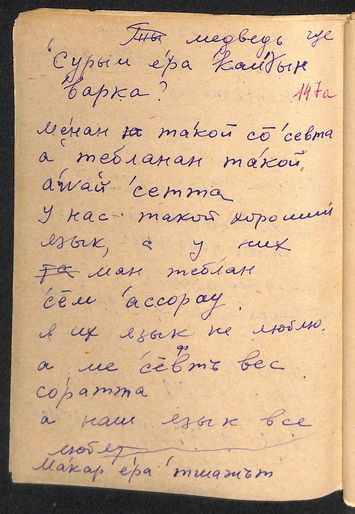 Ты медведь где
Сурым е́ра кайғын
варка?
147а
ме́нан такой сө̄ се́вта
а тебланан та́кой
а́wай се́тта
У нас такой хороший
язык, а у них
ман теблан
се̄м ассорау
я их язык не люблю.
а ме се̄втъ вес
соратта
а наш язык все
любят
Мака́р е́ра